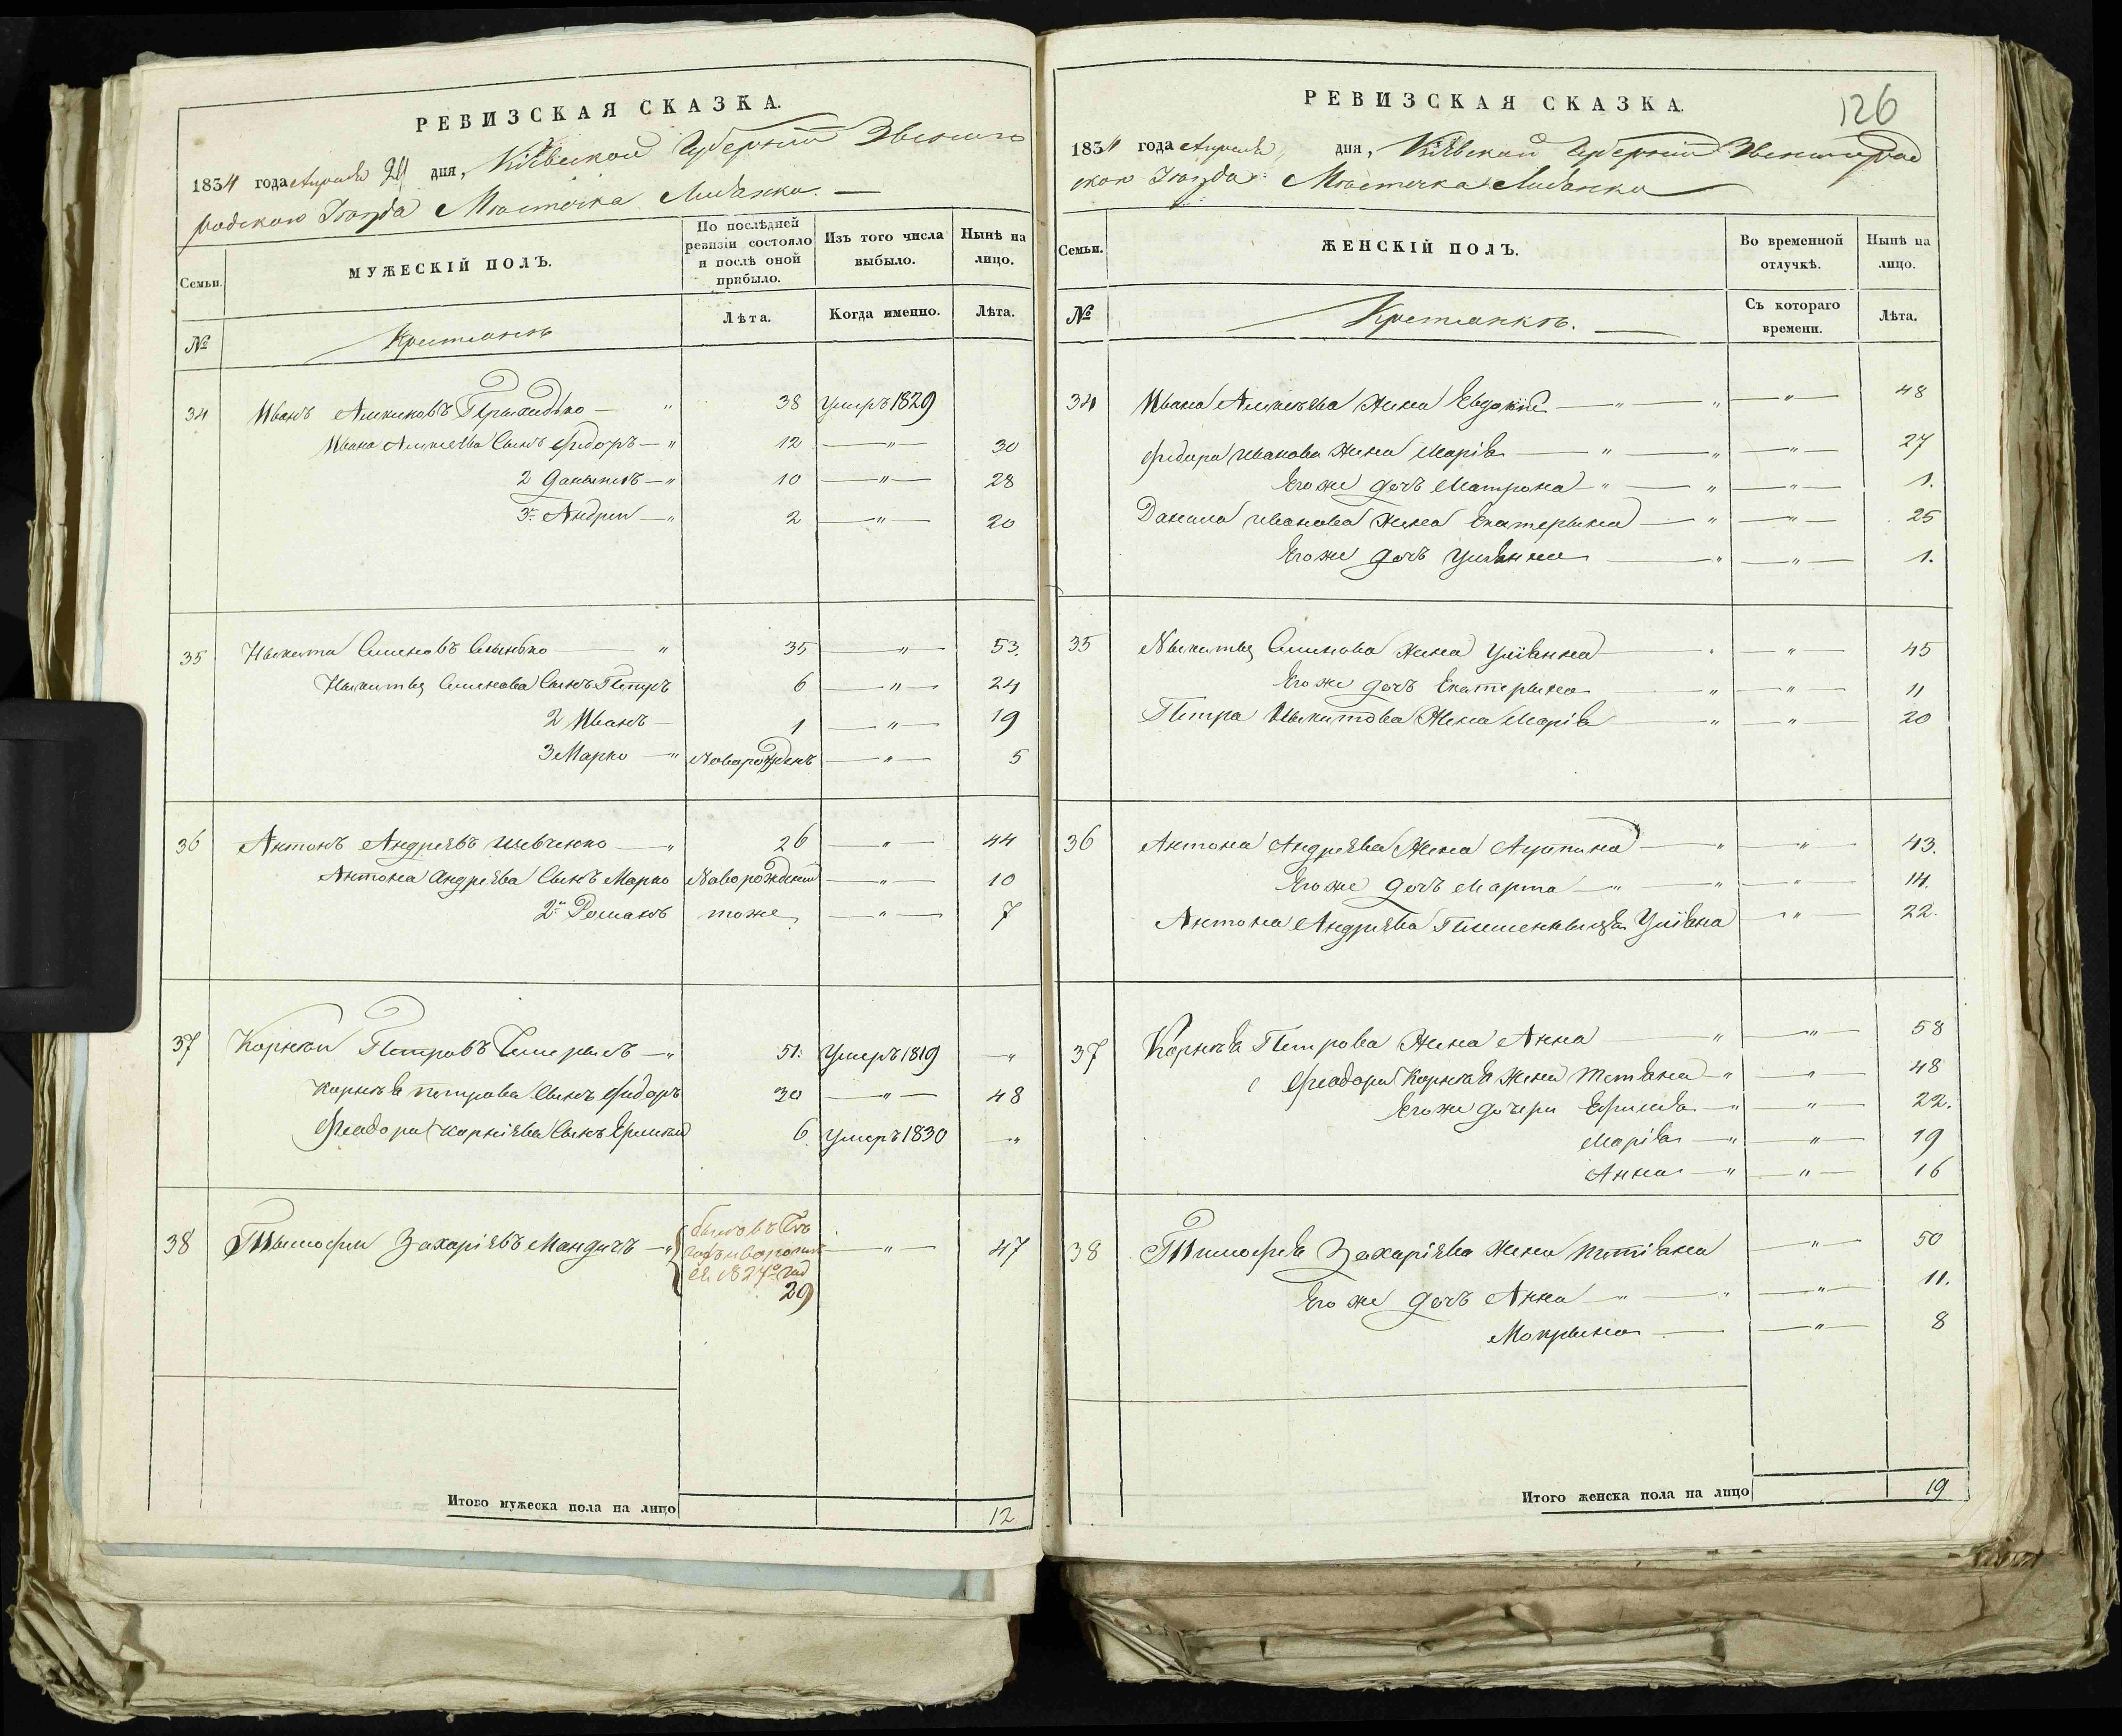 РЕВИЗСКАЯ СКАЗКА.
1834 года Апреля дня, Кіевской Губерніи Звениго
родскаго Уѣзда Мѣстечка Лисянки. —
Семьи.
МУЖЕСКІЙ ПОЛЪ.
По послѣдней ревизіи состояло и послѣ оной прибыло.
Изъ того числа выбыло.
Нынѣ на лицо.
№
Крестьянъ
Лѣта.
Когда именно.
Лѣта.
34 Иванъ — " 38 умеръ 1829
Ивана Сынъ Фидоръ — " 12 — " — 30
2 Данылъ — " 10 — " — 28
3й Андрей — " 2 — " — 20
35 Ныкита Семеновъ — " 35 — " — 53.
Ныкиты Семенова Сынъ Петръ 6 — " — 24
2 Иванъ — 1 — " — 19
3 Марко — " Новорожденъ — " — 5
36 Антонъ Андріевъ Шевченко — " 26 — " — 44
Антона Андріева Сынъ Марко Новорожденій — " — 10
2й Романъ тоже — " — 7
37 Корній Петровъ — " 51. Умеръ 1819 — "
Корнѣя Петрова Сынъ Фидоръ 30 — " — 48
Феодора Корніева Сынъ 6 Умеръ 1830 — "
38 Тымофей Захаріевъ Мандичъ — " — " — 47
1827го год
29
Итого мужеска пола на лицо 12
126
РЕВИЗСКАЯ СКАЗКА.
1834 года Апреля, дня, Кіевской Губерніи Звенигород
скаго Уѣзда Мѣстечка Лисянки
Семьи.
ЖЕНСКІЙ ПОЛЪ.
Во временной отлучкѣ.
Нынѣ на лицо.
№
Крестьянкъ. —
Съ котораго времени.
Лѣта.
34 Ивана Жена Евдокія — " — " — " — 48
Фидора Иванова Жена Марія — " — " — " — 27
Его же дочь Матрона — " — " — " — 1.
Данила Иванова Жена Екатерына — " — " — 25
Его же дочь Уліянна — " — " — 1.
35 Ныкиты Семенова Жена Уліянна — " — " — 45
Его же дочь Екатерына — " — " — 11
Петра Ныкитова Жена Марія — " — " — 20
36 Антона Андріева Жена Агрипина — " — " — 43.
Его же дочь Марта — " — " — " — 14.
Антона Андріева Уліяна — " — 22.
37 Корнѣя Петрова Жена Анна " — " — 58
Феодора Корнѣя Жена Тетіяна — " — " — 48
Его же дочери — " — " — 22.
Марія — " — " — 19
Анна — " — " — 16
38 Тимофѣя Захаріева Жена — " — 50
Его же дочь Анна — " — " — " — 11.
Мокрына — — " — 8
Итого женска пола на лицо 19